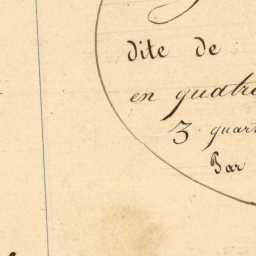 dite de
en quatre
3 quart
Par